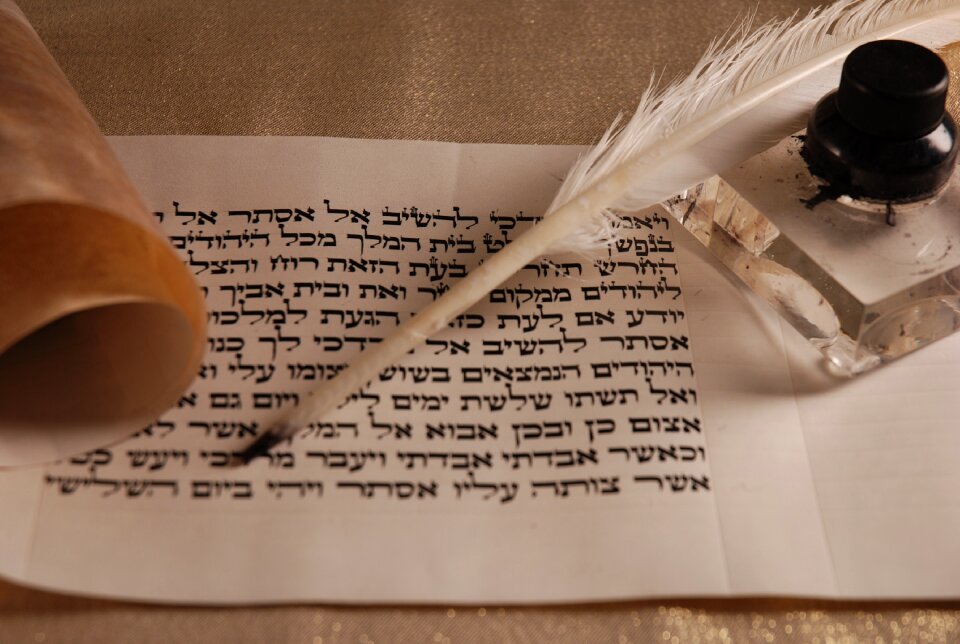 להשיב אל אסתר אל
בנפשך בית המלך מכל היהודים
החרש בעת הזאת רוח
ליהודים ממקום ואת ובית אביך
יודע אם לעת הגעת
אסתר להשיב אל מרדכי לך
היהודים הנמצאים בשושן וצומו עלי
ואל תשתו שלשת ימים ויום גם
אצום כן ובכן אבוא אל המלך אשר
וכאשר אבדתי אבדתי ויעבר מרדכי ויעש
אשר צותה עליו אסתר ויהי ביום השלישי